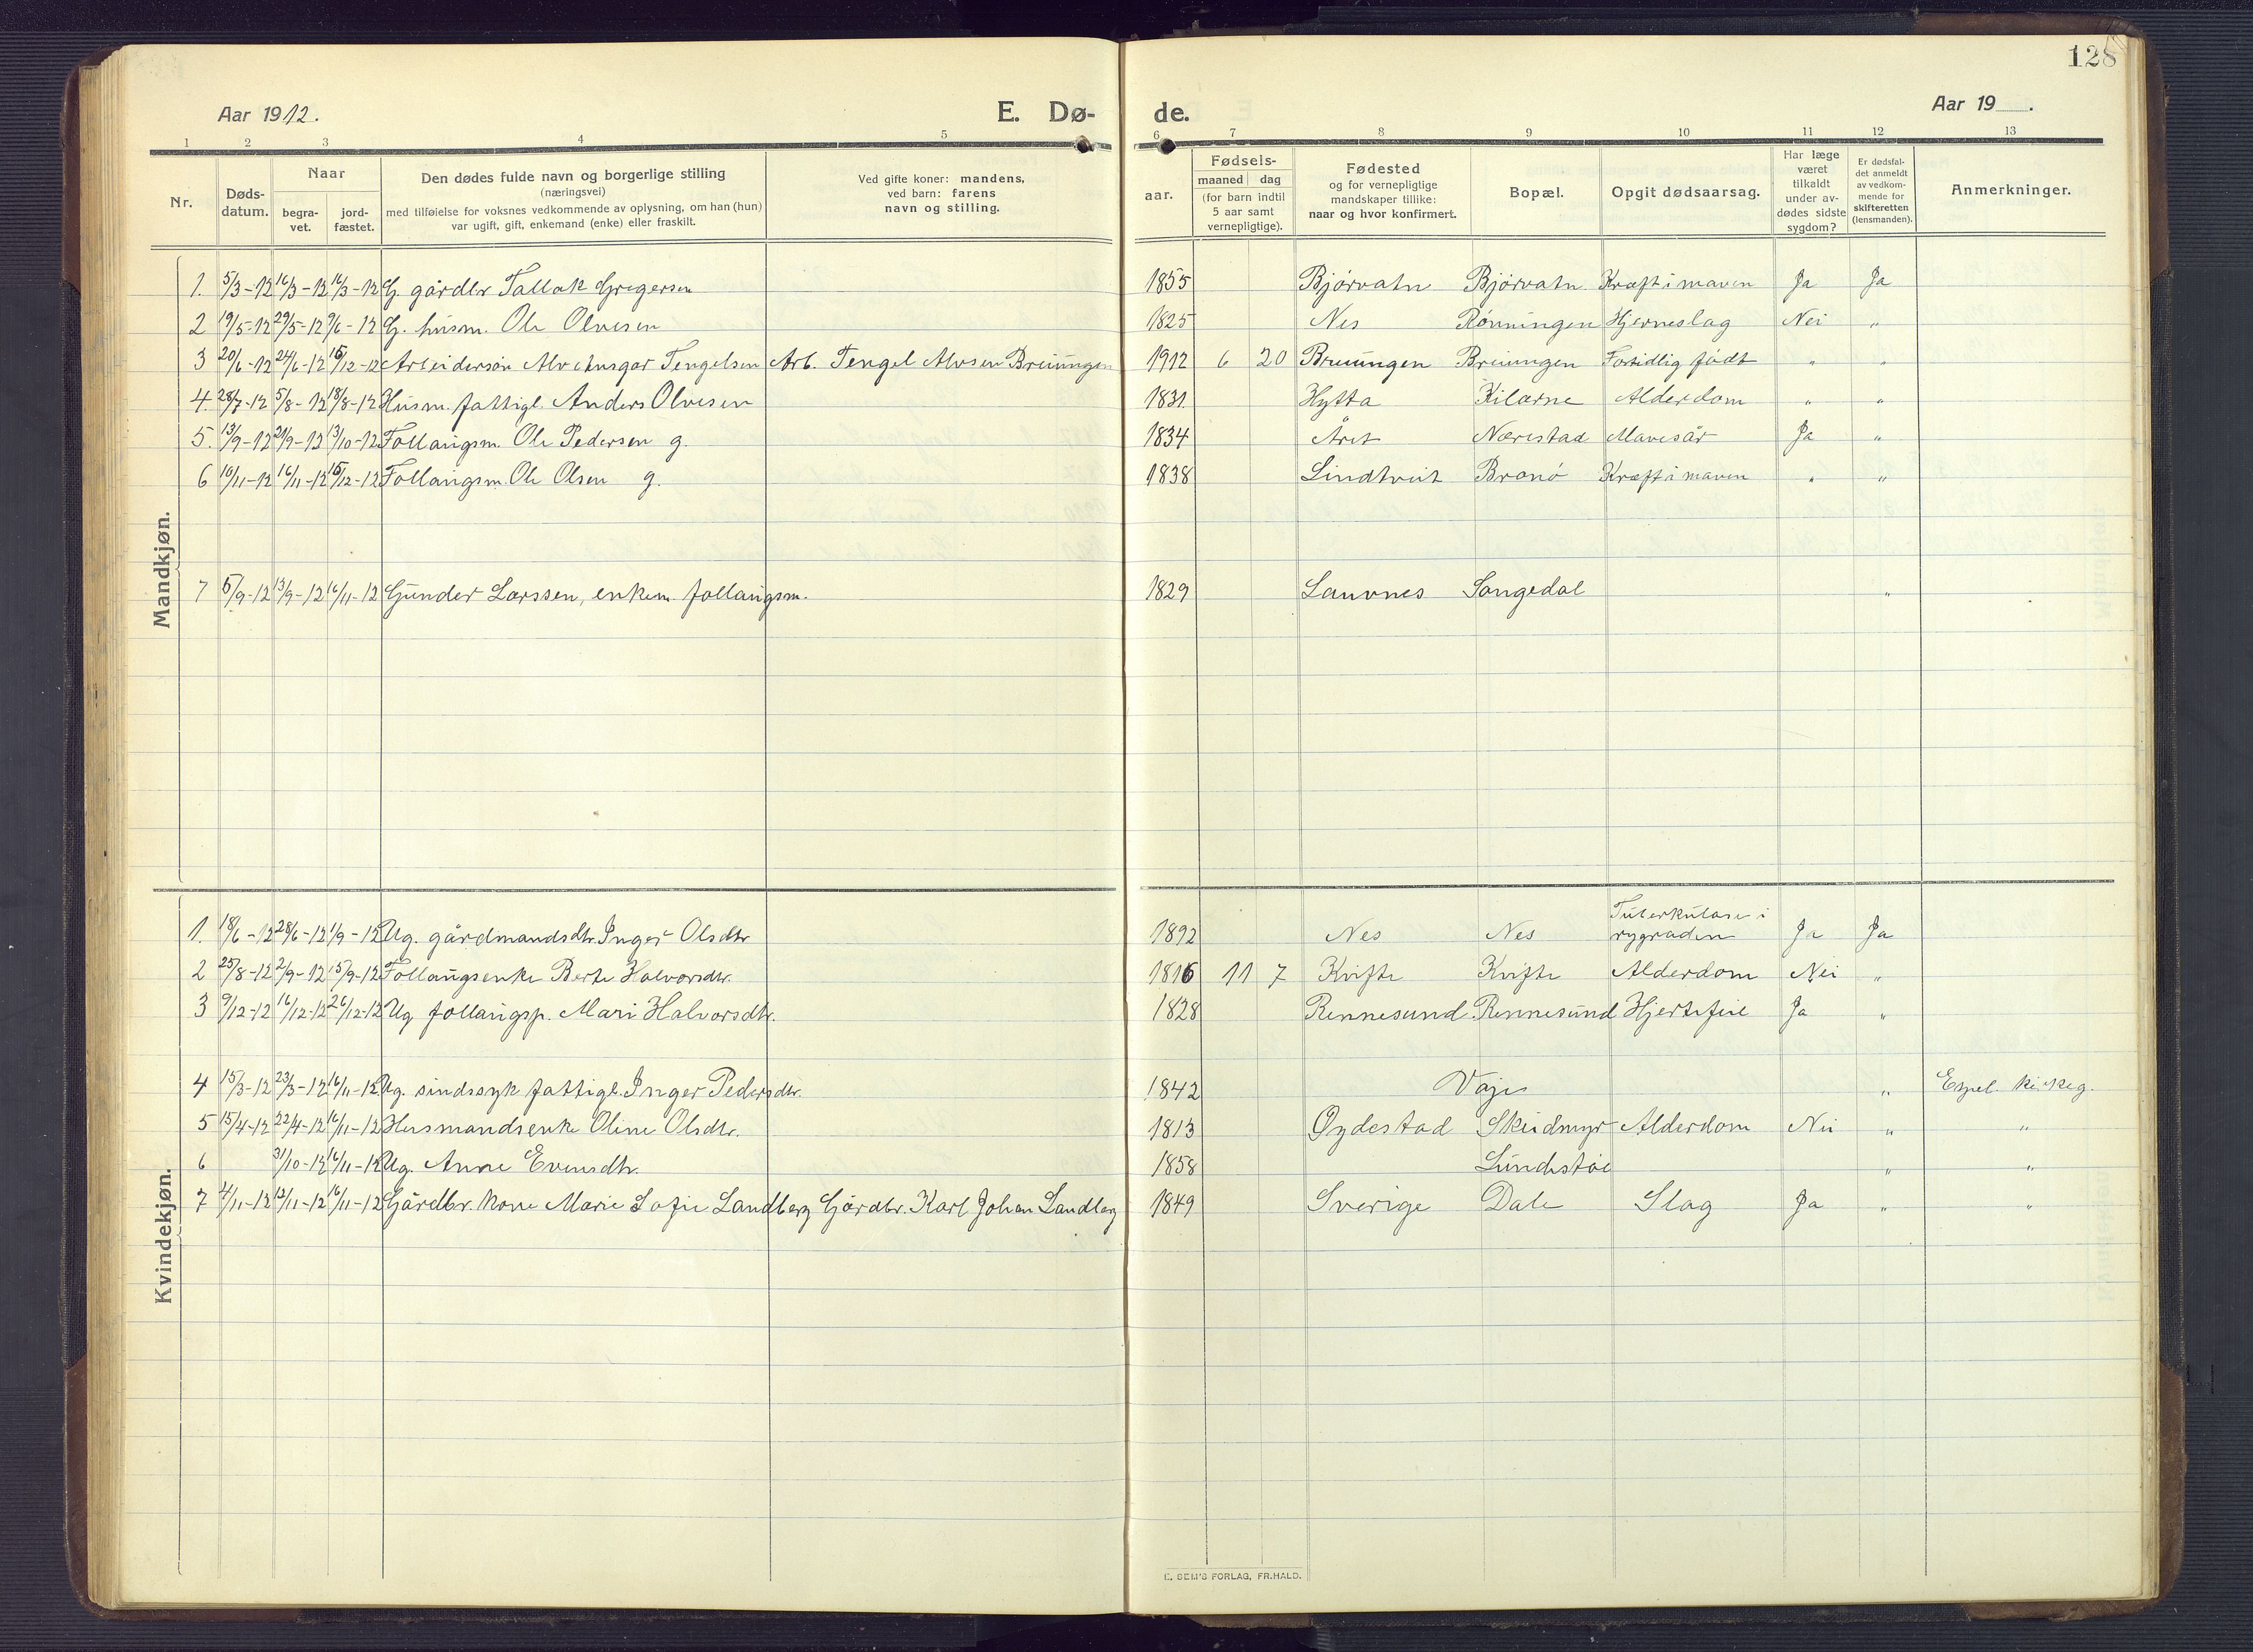 128
Aar 1912.
E. Dø-
de.
Aar 19 .
1 2 3 4 5 6 7 8 9 10 11 12 13
Nr.
Døds-
datum.
Naar
begra-
vet.
jord-
fæstet.
Den dødes fulde navn og borgerlige stilling
(næringsvei)
med tilføielse for voksnes vedkommende av oplysning, om han (hun)
var ugift, gift, enkemand (enke) eller fraskilt.
Ved gifte koner: mandens,
ved barn: farens
navn og stilling.
aar.
Fødsels-
maaned dag
(for barn indtil
5 aar samt
vernepligtige).
Fødested
og for vernepligtige
mandskaper tillike:
naar og hvor konfirmert.
Bopæl.
Opgit dødsaarsag.
Har læge
været
tilkaldt
under av-
dødes sidste
sygdom?
Er dødsfal-
det anmeldt
av vedkom-
mende for
skifteretten
(lensmanden).
Anmerkninger.
Mandkjøn.
1. 5/3-12 16/3-12 16/3-12 G. gårdbr Tallak Gregersen 1855 Bjørvatn Bjørvatn Kræft i maven Ja Ja
2 19/5-12 29/5-12 9/6-12 G. husm. Ole Olvesen 1825 Nes Rønningen Hjerneslag Nei "
3 20/6-12 24/6-12 15/12-12 Arbeidersøn Alv Ansgar Tengelsen Arb. Tengel Alvsen Breiungen 1912 6 20 Breiungen Breiungen Fortidlig født " "
4. 28/7-12 5/8-12 18/8-12 Husm. fattigl. Anders Olvesen 1831 Hytta Kilarne Alderdom " "
5. 13/9-12 21/9-12 13/10-12 Føllaugsm. Ole Pedersen g. 1834 Året Nærestad Mavesår Ja "
6 10/11-12 16/11-12 15/12-12 Føllaugsm. Ole Olsen g. 1838 Lindtveit Bronø Kræft i maven " "
7 5/9-12 13/9-12 16/11-12 Gunder Larssen, enkem. føllaugsm. 1829 Lauvnes Songedal "
Kvindekjøn.
1. 18/6-12 28/6-12 1/9-12 Ug. gårdmandsdtr. Inger Olsdtr 1892 Nes Nes Tuberkulose i rygraden Ja Ja
2 25/8-12 2/9-12 15/9-12 Føllaugsenke Berte Halvorsdtr. 1816 11 7 Kvifte Kvifte Alderdom Nei "
3 9/12-12 16/12-12 26/12-12 Ug føllaugsp. Mari Halvorsdtr. 1828 Rennesund Rennesund Hjertefeil Ja "
4 15/3-12 23/3-12 16/11-12 Ug. sindssyk fattigl. Inger Pedersdtr. 1842 Vaje " kirkeg.
5 15/4-12 22/4-12 16/11-12 Husmandsenke Oline Olsdtr. 1813 Øydestad Skeidmyr Alderdom Nei " "
6 31/10-12 16/11-12 Ug. Anne Evensdtr. 1858 Lundestøe " "
7 4/11-12 12/11-12 16/11-12 Gårdbr. kone Marie Sofie Landberg Gårdbr. Karl Johan Landberg 1849 Sverige Dale Slag Ja " "
E. SEM'S FORLAG, FR.HALD.